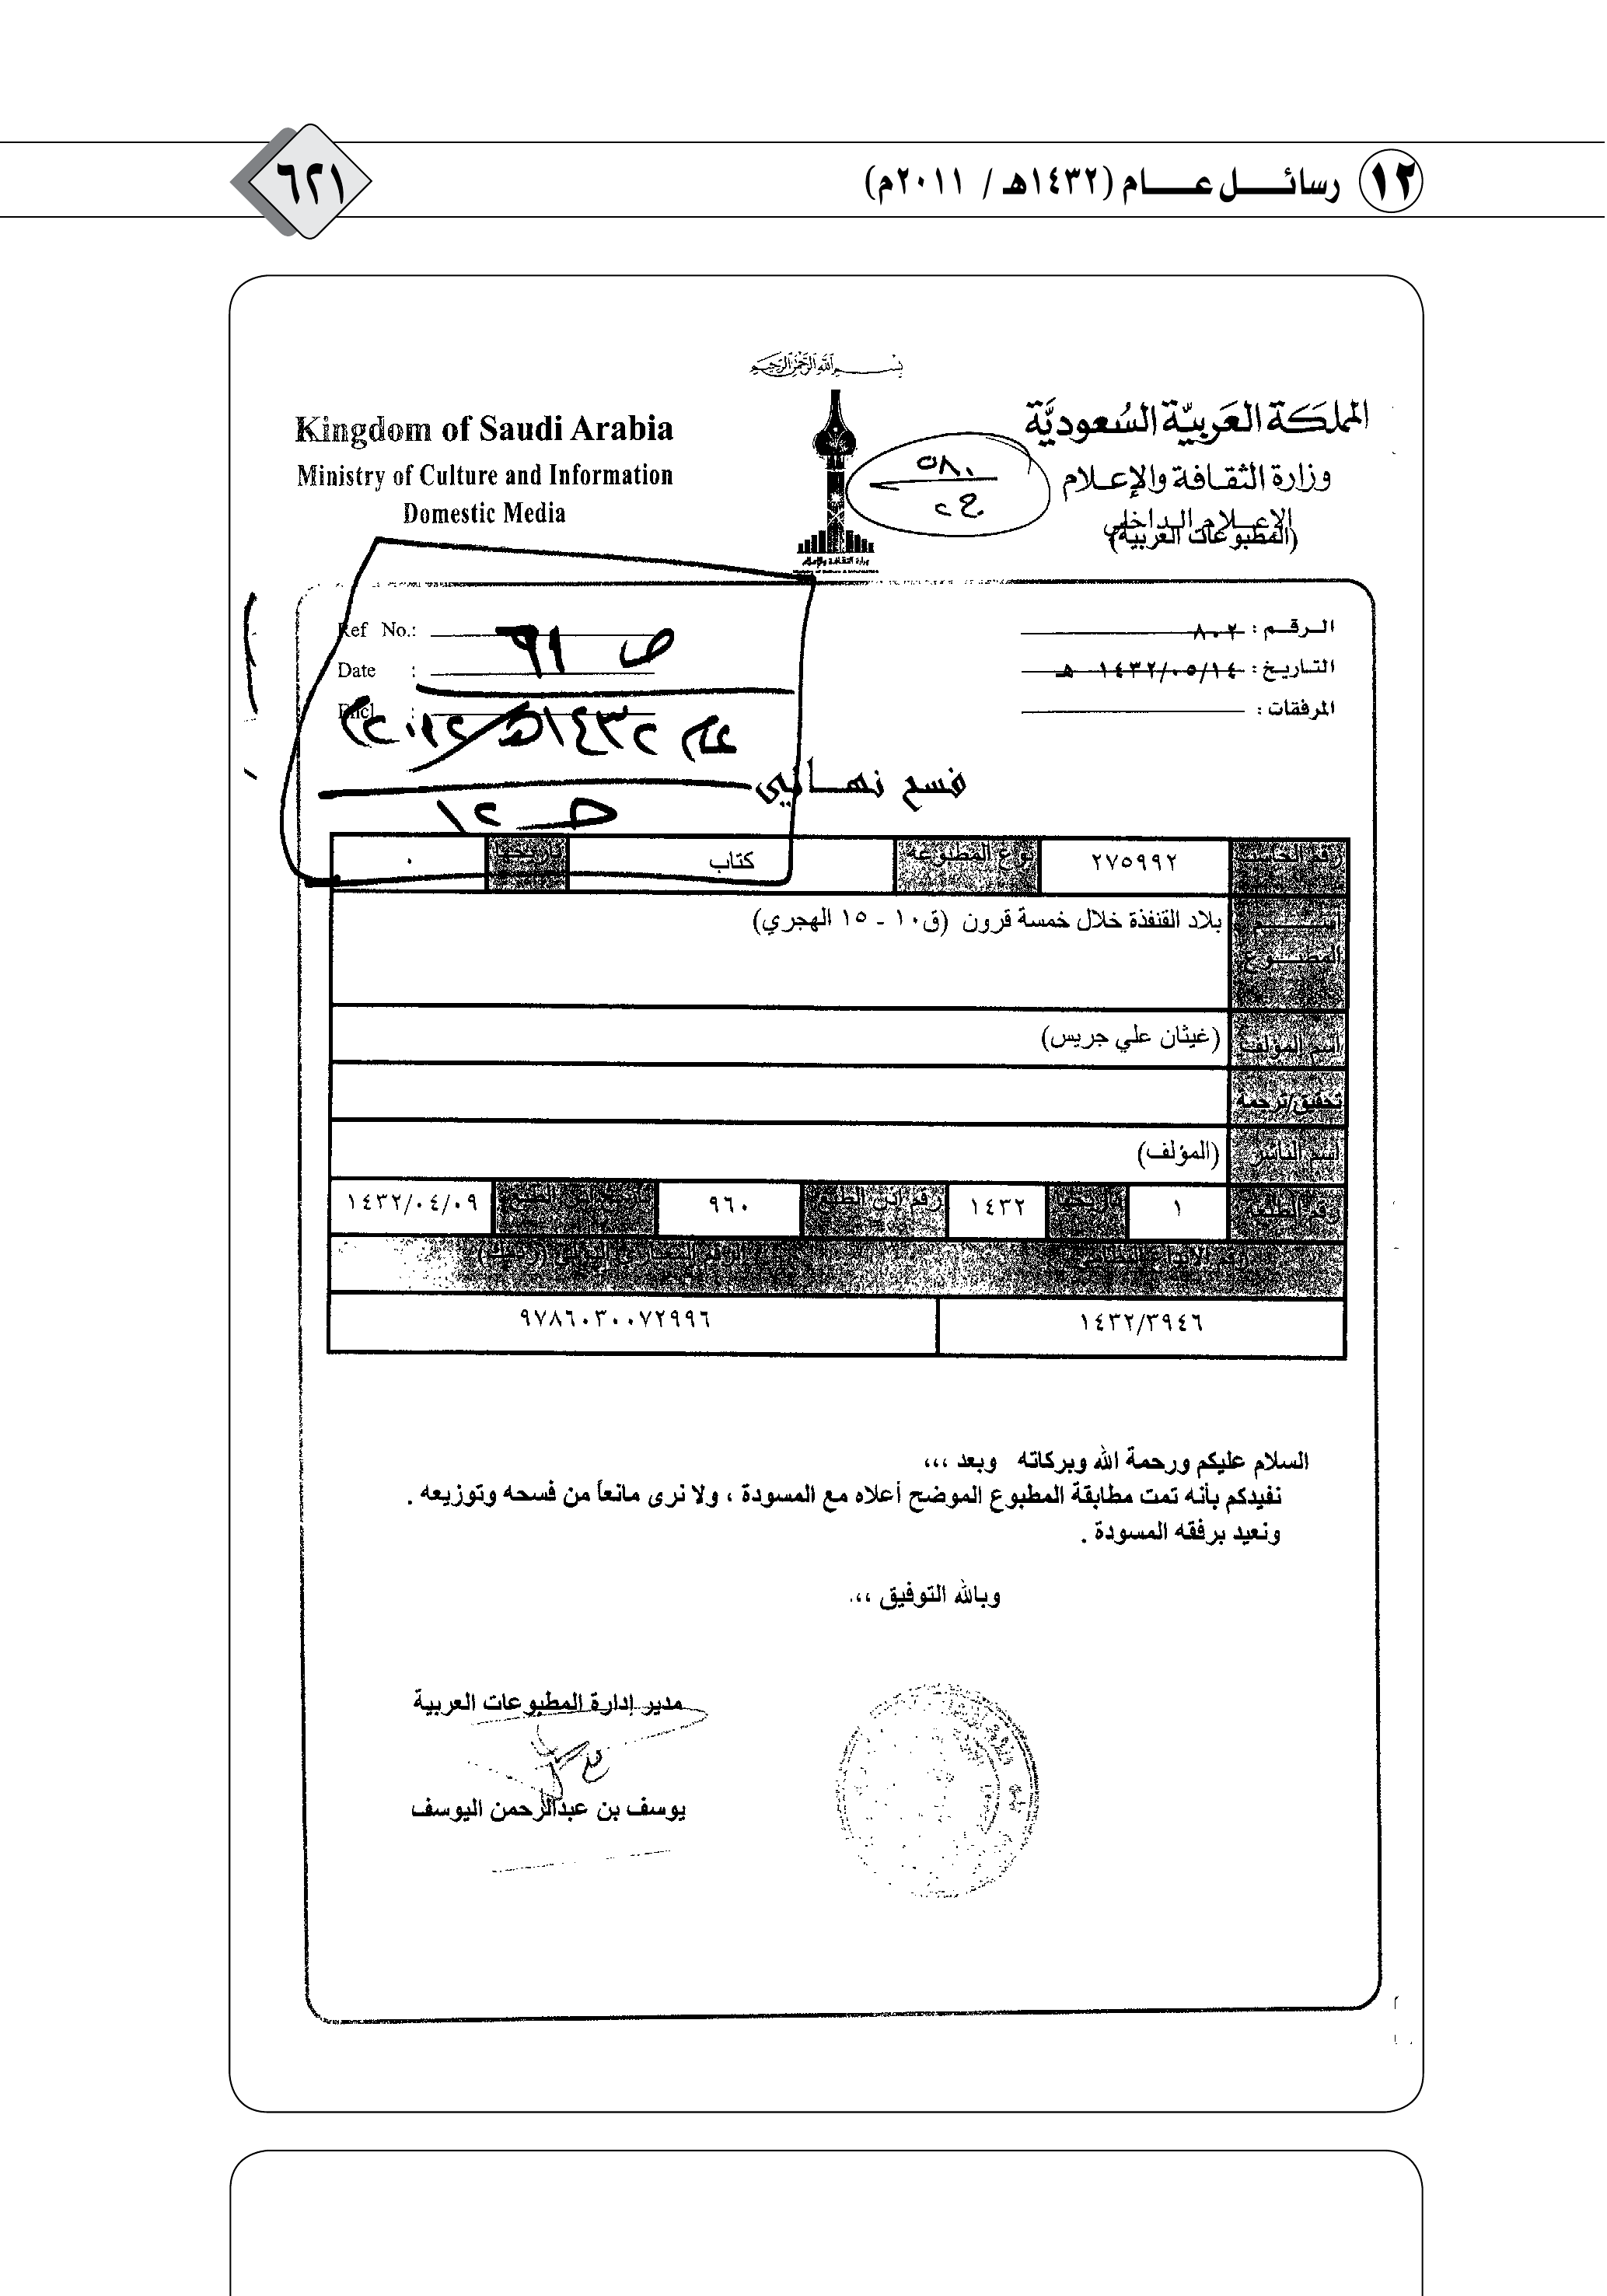 ١٢ رسائــــل عـــــام (١٤٣٢هـ / ٢٠١١م)
٦٢١
بسم الله الرحمن الرحيم
المملكة العربية السعودية
وزارة الثقافة والإعلام
الإعلام الداخلي
(المطبوعات العربية)
Kingdom of Saudi Arabia
Ministry of Culture and Information
Domestic Media
٥٨٠
وزارة الثقافة والإعلام
الرقم : ٨٠٢
التاريخ : ١٤٣٢/٠٥/١٤ هـ
المرفقات :
Ref No.:
Date :
Encl :
ص ٩١
عام ١٤٣٢هـ/٢٠١٢م
فسح نهائي
رقم الحاسب ٢٧٥٩٩٢ نوع المطبوعه كتاب تاريخها ٠
اسم المطبوع بلاد القنفذة خلال خمسة قرون (ق١٠ - ١٥ الهجري)
اسم المؤلف (غيثان علي جريس)
تحقيق/ترجمة
اسم الناشر (المؤلف)
رقم الطبعة ١ تاريخها ١٤٣٢ رقم إذن الطبع ٩٦٠ تاريخ إذن الطبع ١٤٣٢/٠٤/٠٩
١٤٣٢/٣٩٤٦ ٩٧٨٦٠٣٠٠٧٢٩٩٦
السلام عليكم ورحمة الله وبركاته وبعد ،،،
نفيدكم بأنه تمت مطابقة المطبوع الموضح أعلاه مع المسودة ، ولا نرى مانعاً من فسحه وتوزيعه .
ونعيد برفقه المسودة .
وبالله التوفيق ،،،
مدير إدارة المطبوعات العربية
يوسف بن عبدالرحمن اليوسف